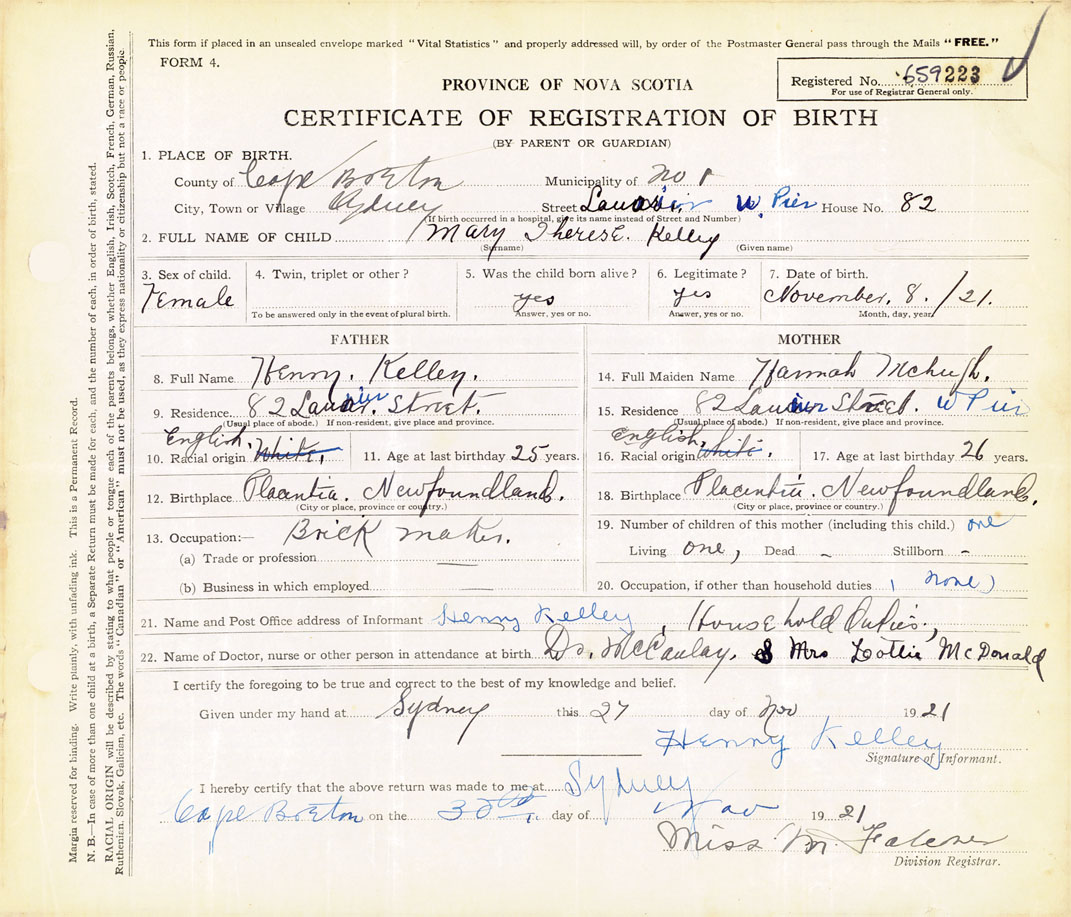 This form if placed in an unsealed envelope marked "Vital Statistics" and properly addressed will, by order of the Postmaster General pass through the Mails "FREE."
FORM 4.
Registered No. 659223
For use of Registrar General only.
PROVINCE OF NOVA SCOTIA
CERTIFICATE OF REGISTRATION OF BIRTH
(BY PARENT OR GUARDIAN)
1. PLACE OF BIRTH.
County of Cape Breton Municipality of No 1
City, Town or Village Sydney Street W. Pier House No. 82
(If birth occurred in a hospital, give its name instead of Street and Number)
2. FULL NAME OF CHILD Mary Therese. Kelley
(Surname) (Given name)
3. Sex of child. 4. Twin, triplet or other? 5. Was the child born alive? 6. Legitimate? 7. Date of birth.
Female yes yes November. 8. /21.
To be answered only in the event of plural birth. Answer, yes or no. Answer, yes or no. Month, day, year
FATHER
8. Full Name Henry. Kelley.
9. Residence 82 Street.
(Usual place of abode.) If non-resident, give place and province.
English.
10. Racial origin White. 11. Age at last birthday 25 years.
12. Birthplace Placentia. Newfoundland.
(City or place, province or country.)
13. Occupation:— Brick maker.
(a) Trade or profession
(b) Business in which employed
MOTHER
14. Full Maiden Name Hannah McHugh.
15. Residence 82 Street. W Pier
(Usual place of abode.) If non-resident, give place and province.
English.
16. Racial origin White. 17. Age at last birthday 26 years.
18. Birthplace Placentia. Newfoundland.
(City or place, province or country.)
19. Number of children of this mother (including this child.) one
Living one, Dead - Stillborn -
20. Occupation, if other than household duties (none)
21. Name and Post Office address of Informant Henry Kelley, Household Duties.,
22. Name of Doctor, nurse or other person in attendance at birth Dr. McCaulay. & Mrs Lottie McDonald
I certify the foregoing to be true and correct to the best of my knowledge and belief.
Given under my hand at Sydney this 27 day of Nov 1921
Henry Kelley
Signature of Informant.
I hereby certify that the above return was made to me at Sydney
Cape Breton on the 30th day of Nov 1921
Miss M.
Division Registrar.
Margin reserved for binding. Write plainly, with unfading ink. This is a Permanent Record.
N. B.—In case of more than one child at a birth, a Separate Return must be made for each, and the number of each, in order of birth, stated.
RACIAL ORIGIN will be described by stating to what people or tongue each of the parents belongs, whether English, Irish, Scotch, French, German, Russian,
Ruthenian, Slovak, Galician, etc. The words "Canadian" or "American" must not be used, as they express nationality or citizenship but not a race or people.